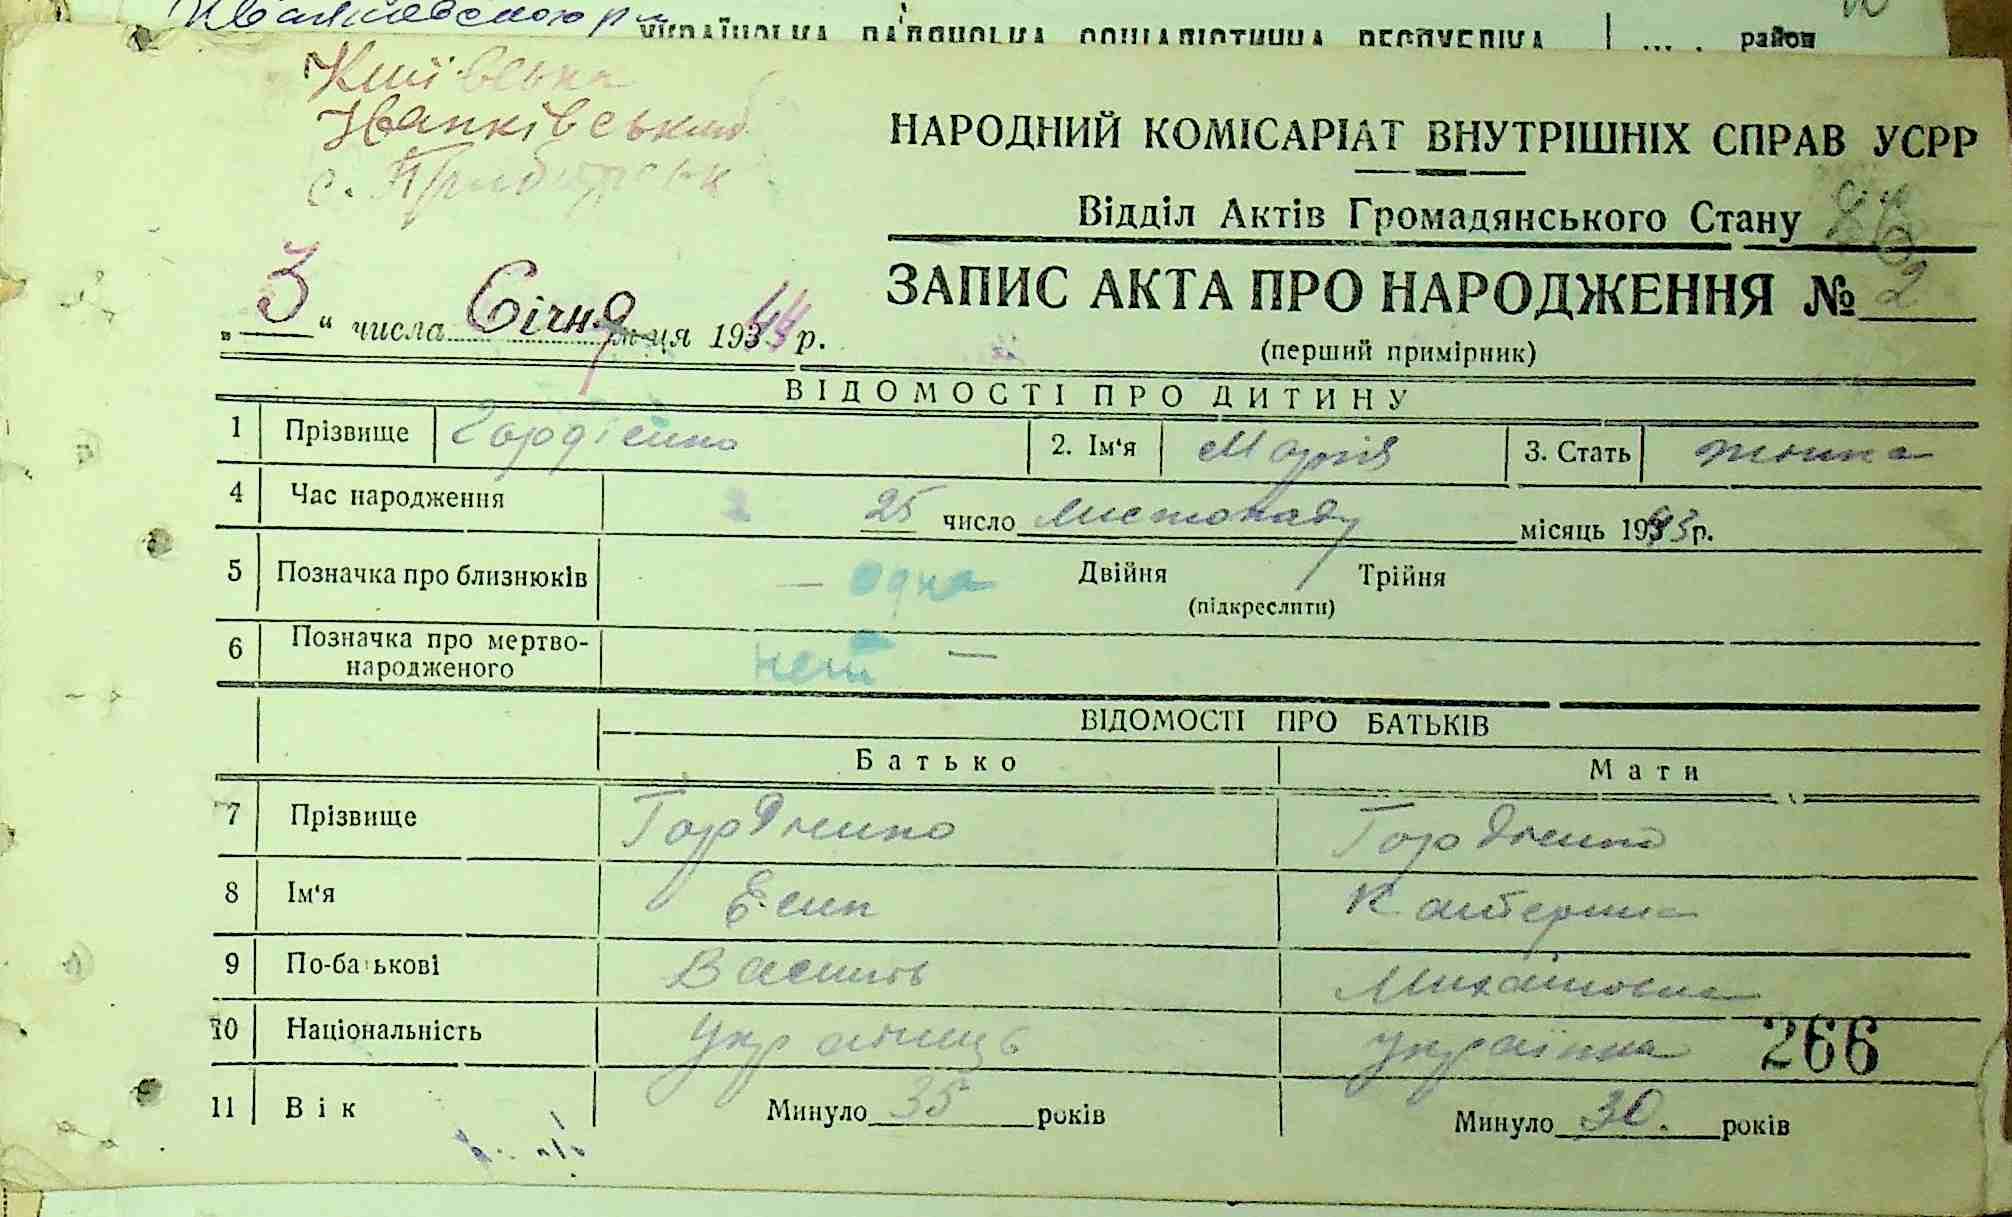 УКРАЇНСЬКА РАДЯНСЬКА СОЦІАЛІСТИЧНА РЕСПУБЛІКА район
Київська
Іванківський
с. Прибірськ
НАРОДНИЙ КОМІСАРІАТ ВНУТРІШНІХ СПРАВ УСРР
Відділ Актів Громадянського Стану
ЗАПИС АКТА ПРО НАРОДЖЕННЯ № 2
„3“ числа Січня м-ця 1944 р.
(перший примірник)
ВІДОМОСТІ ПРО ДИТИНУ
1 Прізвище Гордієнко 2. Ім'я Марія 3. Стать жінка
4 Час народження 25 число листопаду місяць 1943 р.
5 Позначка про близнюків — одна Двійня Трійня
(підкреслити)
6 Позначка про мертво-
народженого нет —
ВІДОМОСТІ ПРО БАТЬКІВ
Батько Мати
7 Прізвище Гордієнко Гордієнко
8 Ім'я Есип Катерина
9 По-батькові Василь Михайловна
10 Національність Українець Українка 266
11 Вік Минуло 35 років Минуло 30. років